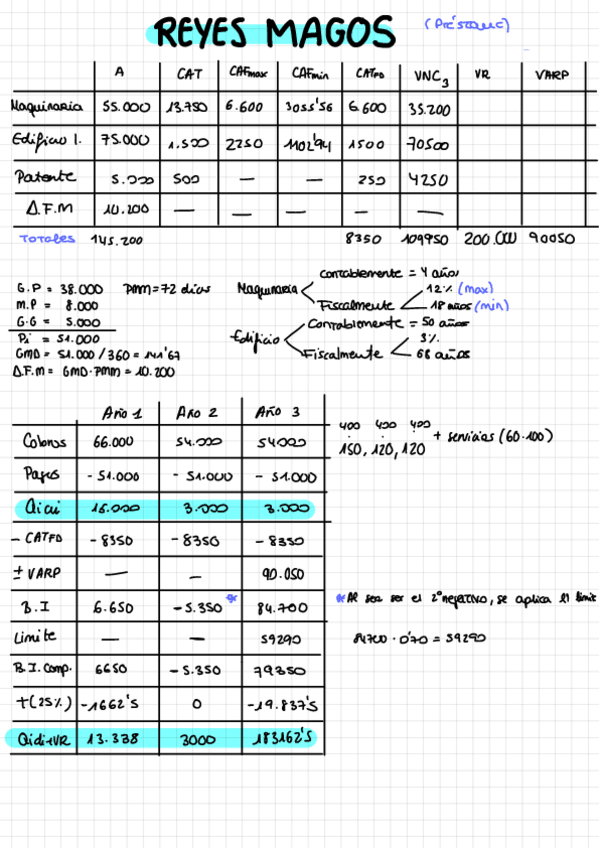 REYES MAGOS (Préstamo)
A CAT CAFmax CAFmin CATFD VNC3 VR VARP
Maquinaria 55.000 13.750 6.600 3055'56 6.600 35.200
Edificio I. 75.000 1.500 2250 1102'94 1500 70500
Patente 5.000 500 — — 250 4250
Δ.F.M 10.200 — — — — —
TOTALES 145.200 8350 109950 200.000 90050
G.P = 38.000 PMM = 72 días
M.P = 8.000
G.G = 5.000
Pi = 51.000
GMD = 51.000 / 360 = 141'67
Δ.F.M = GMD · PMM = 10.200
Maquinaria
contablemente = 4 años
Fiscalmente
12% (max)
18 años (min)
Edificio
Contablemente = 50 años
Fiscalmente
3%
68 años
Año 1 Año 2 Año 3
Cobros 66.000 54.000 54000
Pagos - 51.000 - 51.000 - 51.000
Qiai 16.000 3.000 3.000
- CATFD - 8350 - 8350 - 8350
± VARP — — 90.050
B.I 6.650 - 5.350 * 84.700
Limite — — 59290
B.I. Comp. 6650 - 5.350 79350
t (25%) - 1662'5 0 - 19.837'5
Qidi+VR 13.338 3000 183162'5
400 400 400
150, 120, 120 + servicios (60·100)
* Al ser el 2º negativo, se aplica el límite
84700 · 0'70 = 59290